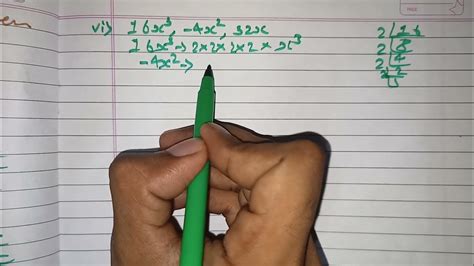 vi) 16x³, -4x², 32x
16x³ → 2×2×2×2 × x³
-4x² →
2 | 16
2 | 8
2 | 4
2 | 2
1